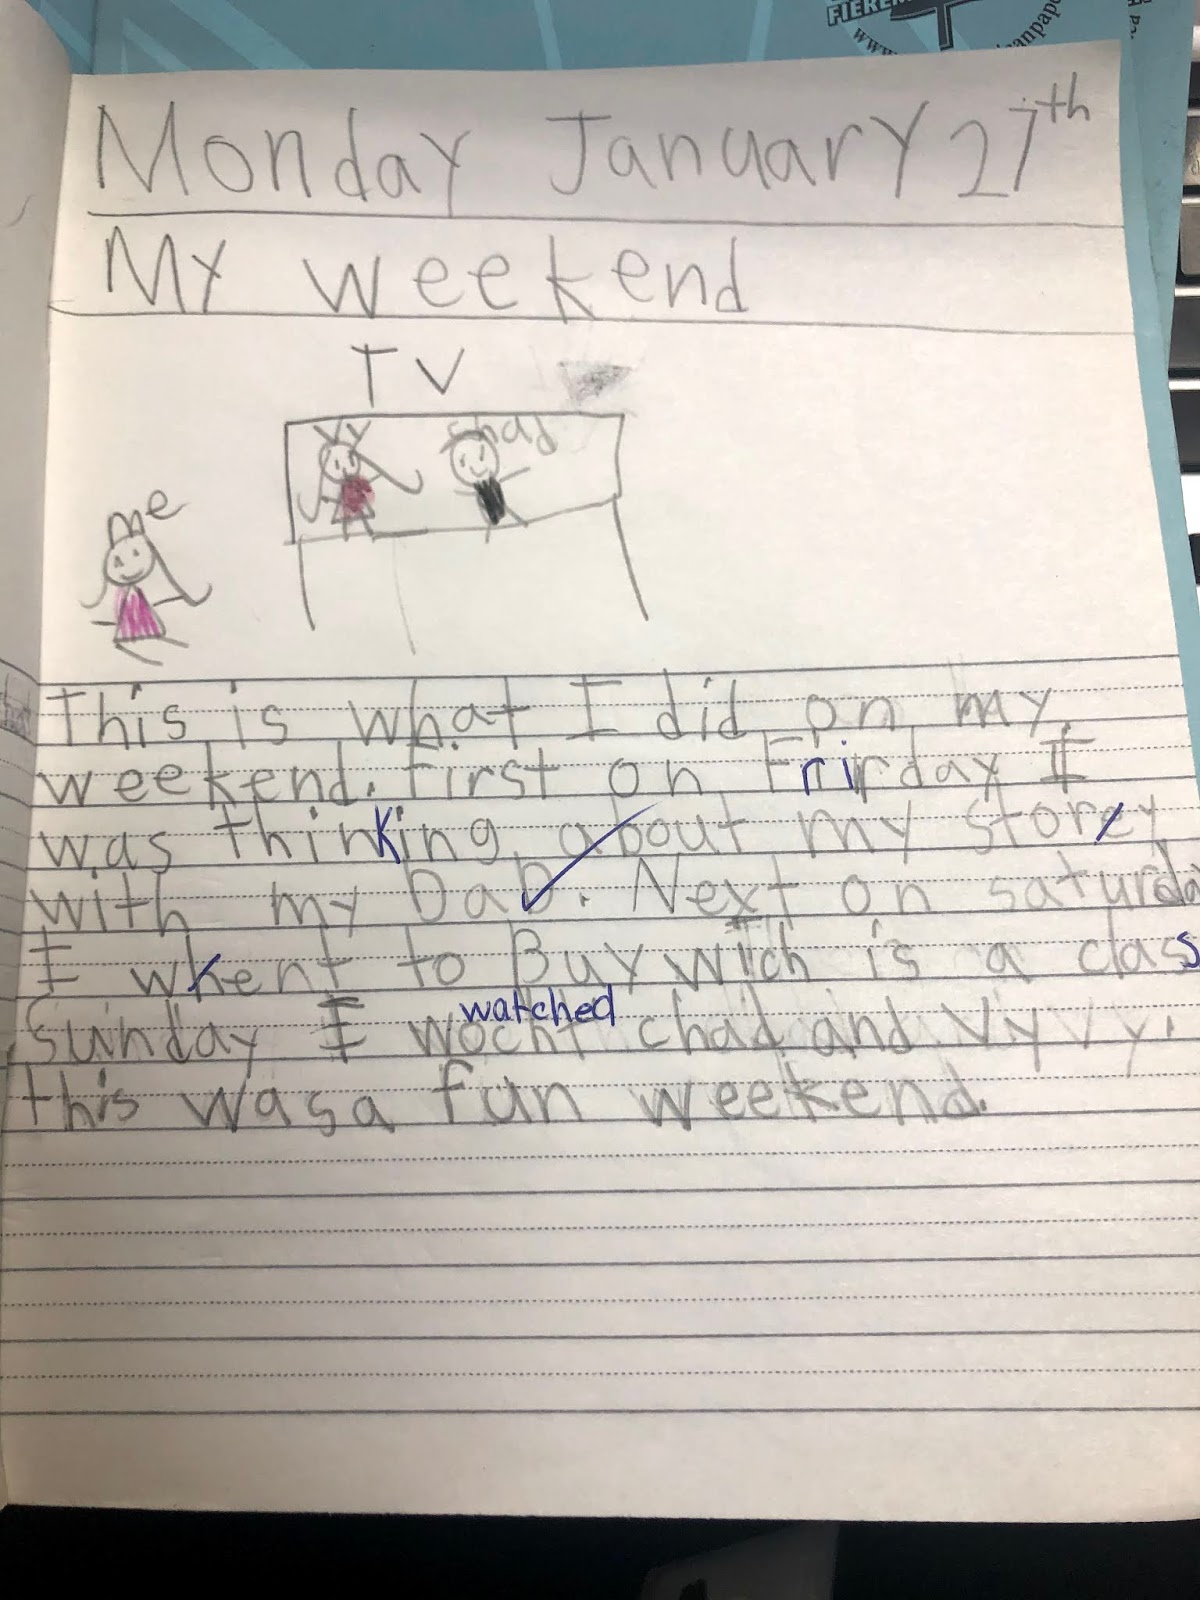 FIEREM
www
anpap
Monday January 27th
My weekend
TV
Vy
chad
me
This is what I did on my
weekend. First on Frirday I
was thinking about my storey
with my DaD. Next on saturda
I wkent to Buy wich is a class
Sunday I wocht chad and Vy Vy.
watched
this was a fun weekend.